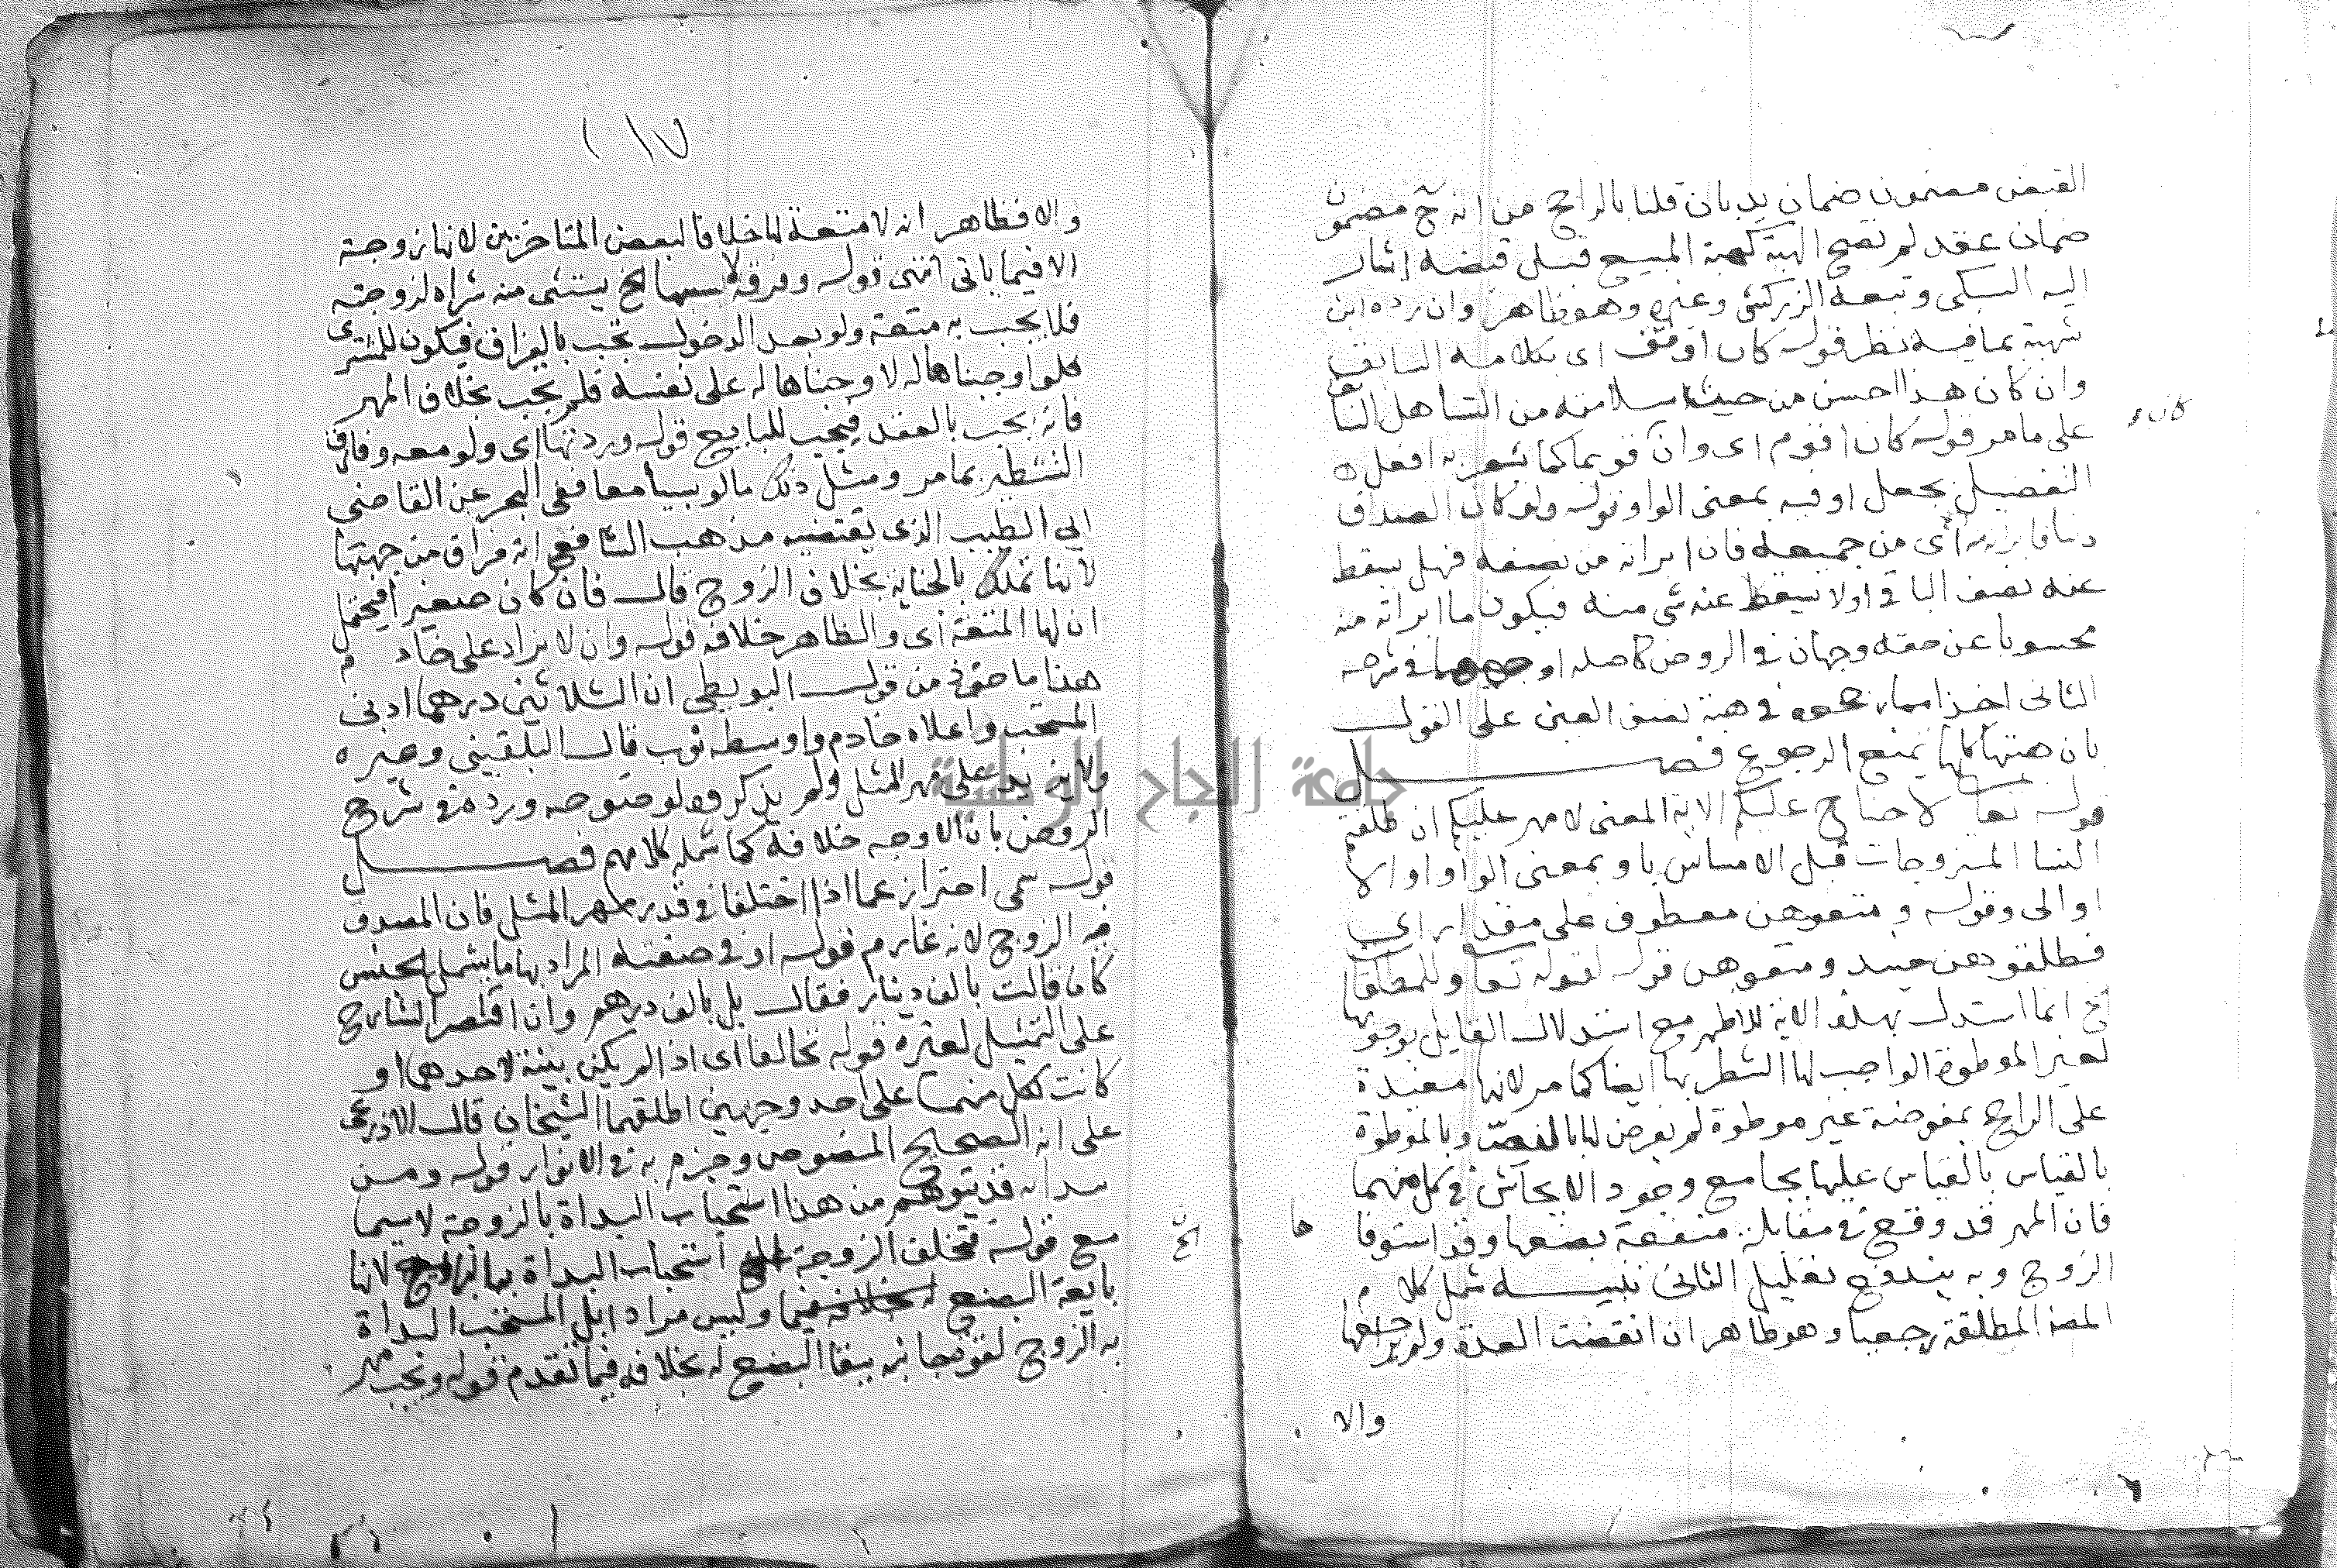 القبض مضمون ضمان يد بان قلنا بالراجح من انه ح مضمون
ضمان عقد لم تصح الهبة كهبة المبيع قبل قبضه اشار
اليه السبكى وتبعه الزركشى وغيره وهو ظاهر وان رده ابن
شهبة بما فيه نظر قوله كان اوفق اى بكلامه السابق
وان كان هذا احسن من حيث سلامته من التساهل السابق
كان
على ما مر قوله كان اقوم اى وان قويما كما يشعر به افعل
التفضيل بجعل او فيه بمعنى الواو قوله ولو كان الصداق
دينا فابرته اى من جميعه فان ابراته من نصفه فهل يسقط
عنه نصف الباقى او لا يسقط عنه شى منه فيكون ما ابراته منه
محسوبا عن حقه وجهان فى الروض كاصله اوجههما فى شرحه
الثانى اخذا مما رجحوه فى هبة نصف العين على القول
بان هبتها كلها تمنع الرجوع فصل
قوله تعا لا جناح عليكم الاية المعنى لا مهر عليكم ان طلقتم
النسا المزوجات قبل الامساس او بمعنى الواو او الا
او الى وقوله ومتعوهن معطوف على مقدر اى
فطلقوهن حينيد ومتعوهن قوله لقوله تعا وللمطلقات
الخ انما استدل بهذه الاية للاظهر مع استدلال القايل بوجوبها
لغير الموطوة الواجب لها الشطر بها ايضا كما مر لانها مقيدة
على الراجح بمفوضة غير موطوة لم يفرض لها بالنص وبالموطوة
بالقياس بالقياس عليها بجامع وجود الايحاش فى كل منهما
فان المهر قد وقع فى مقابلة منفعة بضعها وقد استوفاها
الزوج وبه يندفع تعليل الثانى تنبيه شمل كلام
المصـ المطلقة رجعيا وهو ظاهر ان انقضت العدة ولم يراجعها
والا
١٧
والا فظاهر انه لا متعة لها خلافا لبعض المتاخرين لانها زوجة
الا فيما ياتى انتهى قوله وفرقة لا بسببها الخ يستثنى منه شراه لزوجته
فلا يجب به متعة ولو بعد الدخول تجب بالفراق فيكون للمشترى
فلو اوجبناها له لاوجبناها له على نفسه فلم يجب بخلاف المهر
فانه يجب بالعقد فيجب للبايع قوله وردتها اى ولو معه وفارق
التشطير بما مر ومثل ذلك ما لو سبيا معا ففى البحر عن القاضى
ابى الطيب الذى يقتضيه مذهب الشافعى انه فراق من جهتها
لانها تملك بالحيازة بخلاف الزوج قال فان كان صغيرا فيحتمل
ان لها المتعة اى والظاهر خلافه قوله وان لا يزاد على خادم
هذا ماخوذ من قول البويطى ان الثلاثين درهما ادنى
المستحب واعلاه خادم واوسطه ثوب قال البلقينى وغيره
ولا يزيد على مهر المثل ولم يذكروه لوضوحه ورده فى شرح
الروض بان الاوجه خلافه كما شمله كلامهم فصل
قوله سمى احتراز عما اذا اختلفا فى قدر مهر المثل فان المصدق
فيه الزوج لانه غارم قوله او فى صفته المراد بها ما يشمل الجنس
كان قالت بالف دينار فقال بل بالف درهم وان اقتصر الشارح
على التمثيل لغيره قوله تحالفا اى اذا لم يكن بينة لاحدهما او
كانت لكل منهما على احد وجهين اطلقهما الشيخان قال الاذرعى
على انه الصحيح المنصوص وجزم به فى الانوار قوله ومن
يبدا به قد يتوهم من هذا استحباب البداة بالزوجة لا سيما
مع قوله فتحلف الزوجة استحباب البداة لانها
الخ
بايعة البضع وليس مرادا بل المستحب البداة
به الزوج لقوة جانبه ببقا البضع له بخلافه فيما تقدم قوله ويجب مهر
جامعة النجاح الوطنية